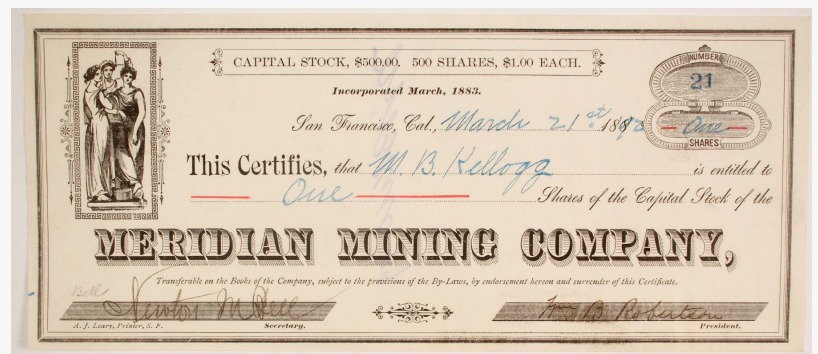 CAPITAL STOCK, $500.00. 500 SHARES, $1.00 EACH.
NUMBER
21
Incorporated March, 1883.
San Francisco, Cal., March 21st 1892
One
SHARES
This Certifies, that M. B. Kellogg is entitled to
One Shares of the Capital Stock of the
MERIDIAN MINING COMPANY,
Transferable on the Books of the Company, subject to the provisions of the By-Laws, by endorsement hereon and surrender of this Certificate.
Bell
Newton M Bell B. Robertson
A. J. Leary, Printer, S. F. Secretary. President.